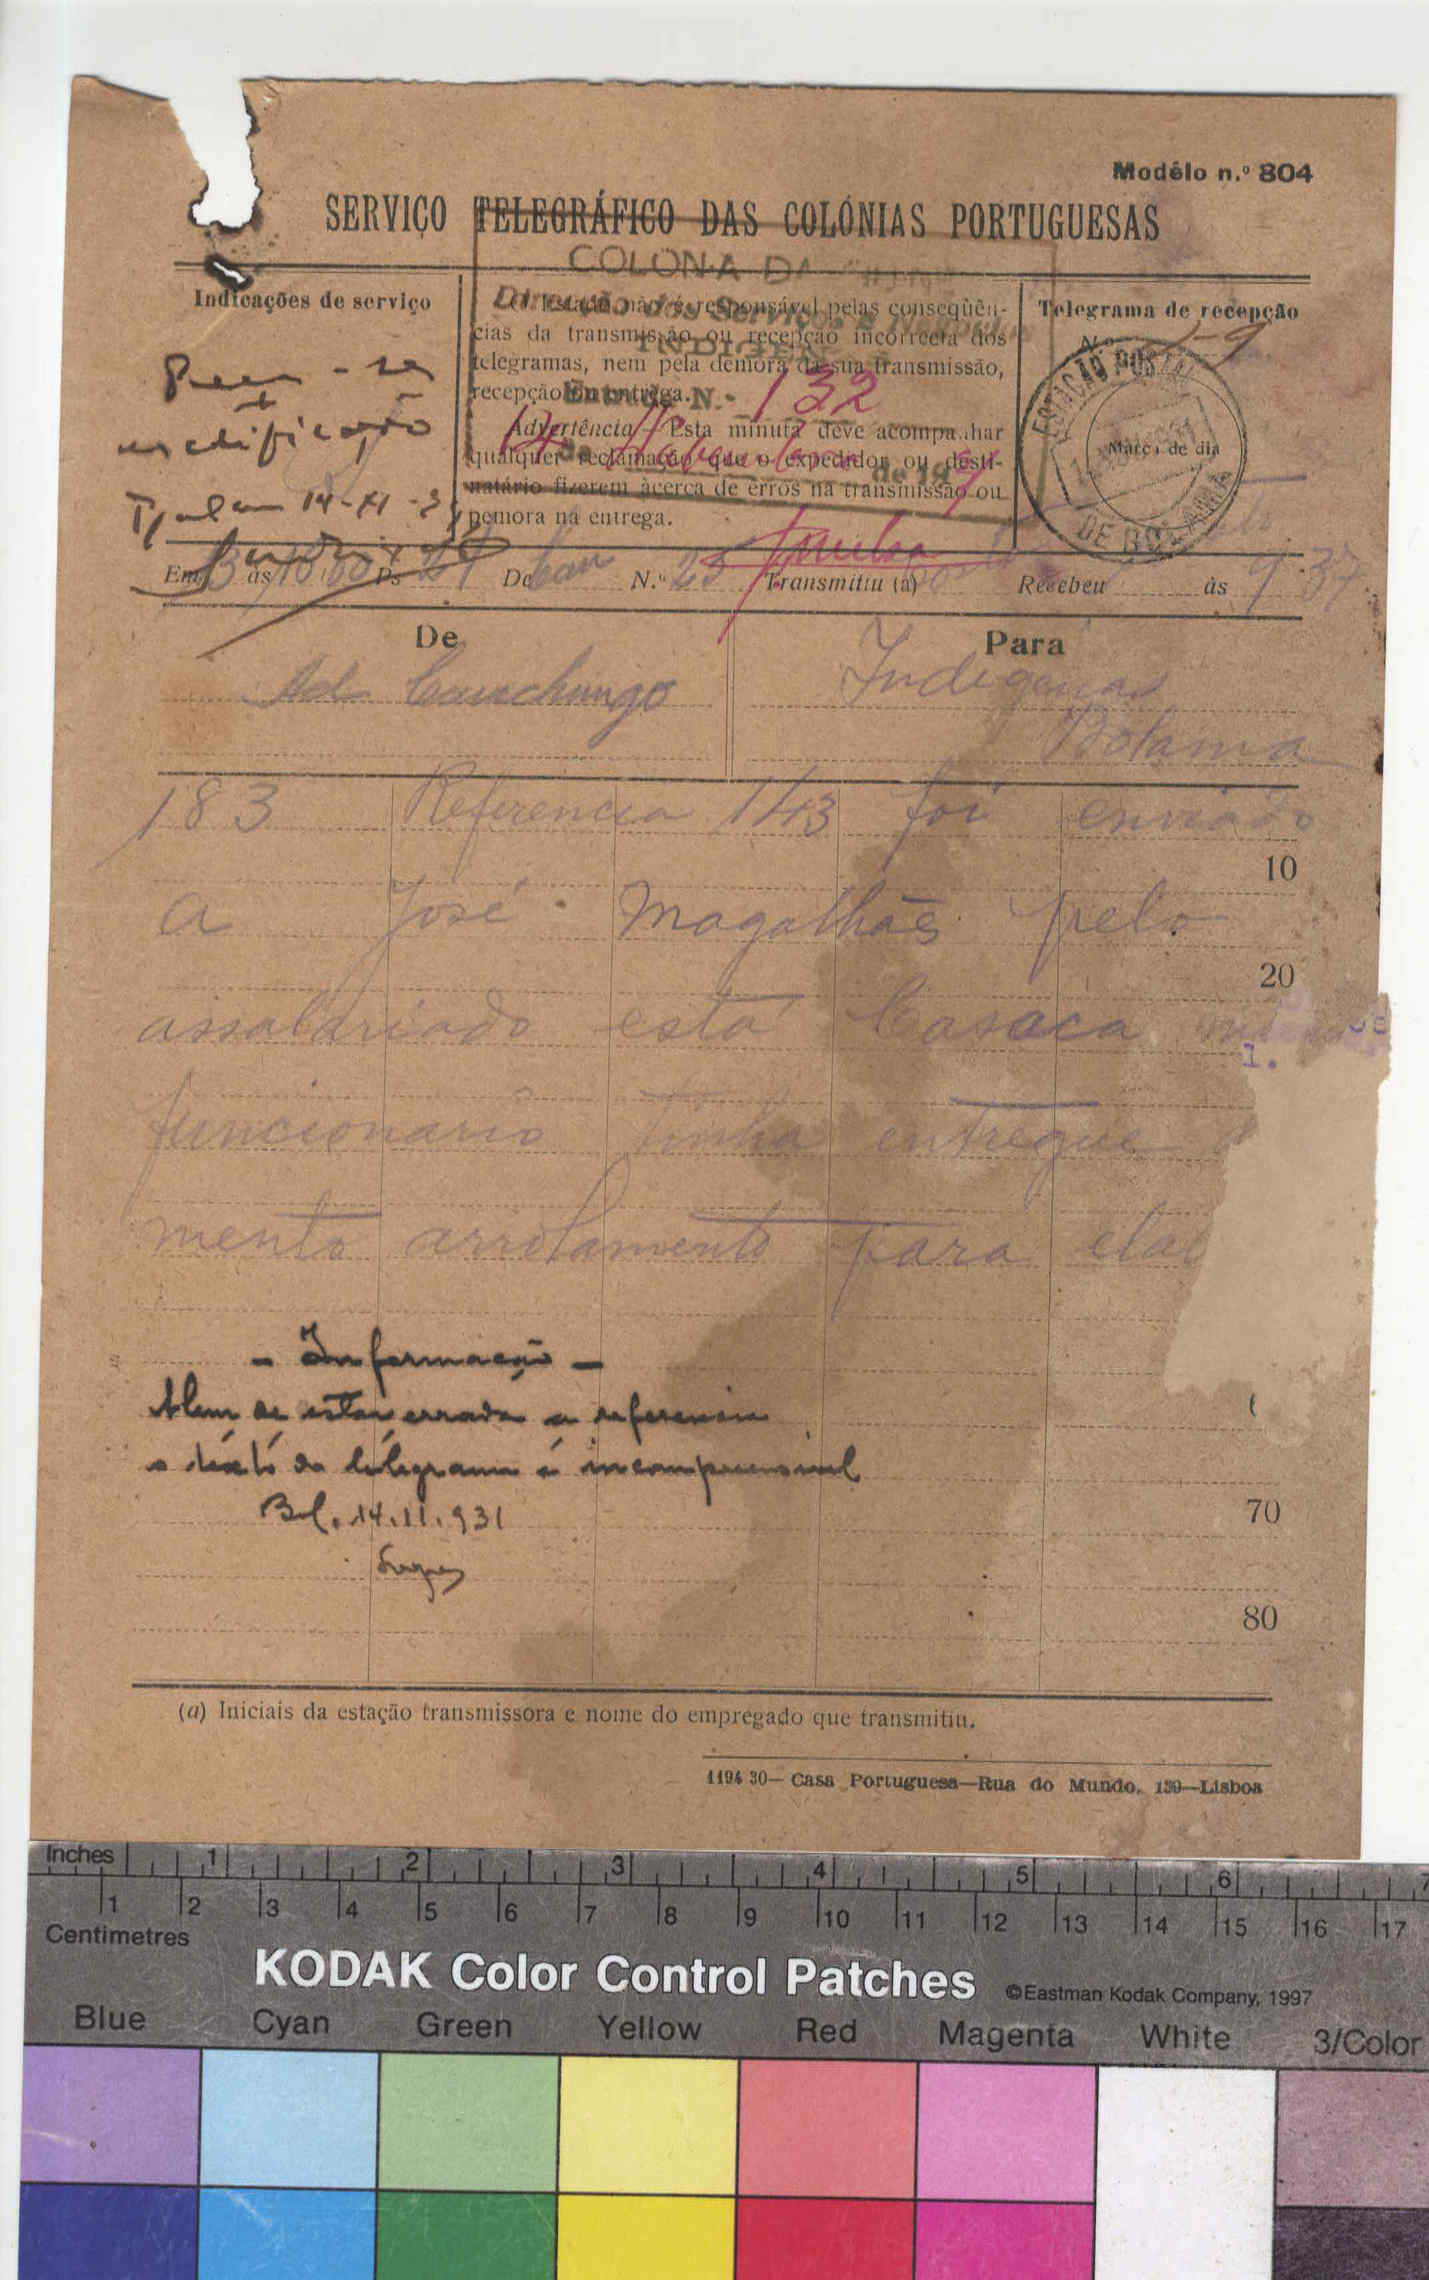 Modêlo n.º 804
SERVIÇO TELEGRÁFICO DAS COLÓNIAS PORTUGUESAS
COLONIA DA
Direcção dos Serviços e Negócios
INDIGENAS
Entrada N.º 132
14 de Novembro de 193
Indicações de serviço
Peça-se
rectificação
14-XI-31
O Estado não é responsável pelas conseqüên-
cias da transmissão ou recepção incorrecta dos
telegramas, nem pela demora da sua transmissão,
recepção ou entrega.
Advertência — Esta minuta deve acompanhar
qualquer reclamação que o expedidor ou desti-
natário fizerem àcerca de erros na transmissão ou
pemora na entrega.
Telegrama de recepção
N.º
ESTAÇÃO POSTAL
Marca de dia
DE BOLAMA
Em 13 às Ps 21 De Can N.º 25 Transmitiu (a) Recebeu às 9 37
De
Para
Adr Canchungo
Indigenas
Bolama
183 Referencia 143 foi enviado
10
a José Magalhães pelo
20
assalariado esta Casaca
1.
funcionario tinha entregue
mento arrolamento para
- Informação -
Alem de estar errada a referencia
o téxto do telegrama é incompreensivel
Bol. 14.11.931
70
80
(a) Iniciais da estação transmissora e nome do empregado que transmitiu.
1194 30— Casa Portuguesa—Rua do Mundo, 139—Lisboa
Inches 1 2 3 4 5 6 7
1 2 3 4 5 6 7 8 9 10 11 12 13 14 15 16 17
Centimetres
KODAK Color Control Patches ©Eastman Kodak Company, 1997
Blue Cyan Green Yellow Red Magenta White 3/Color